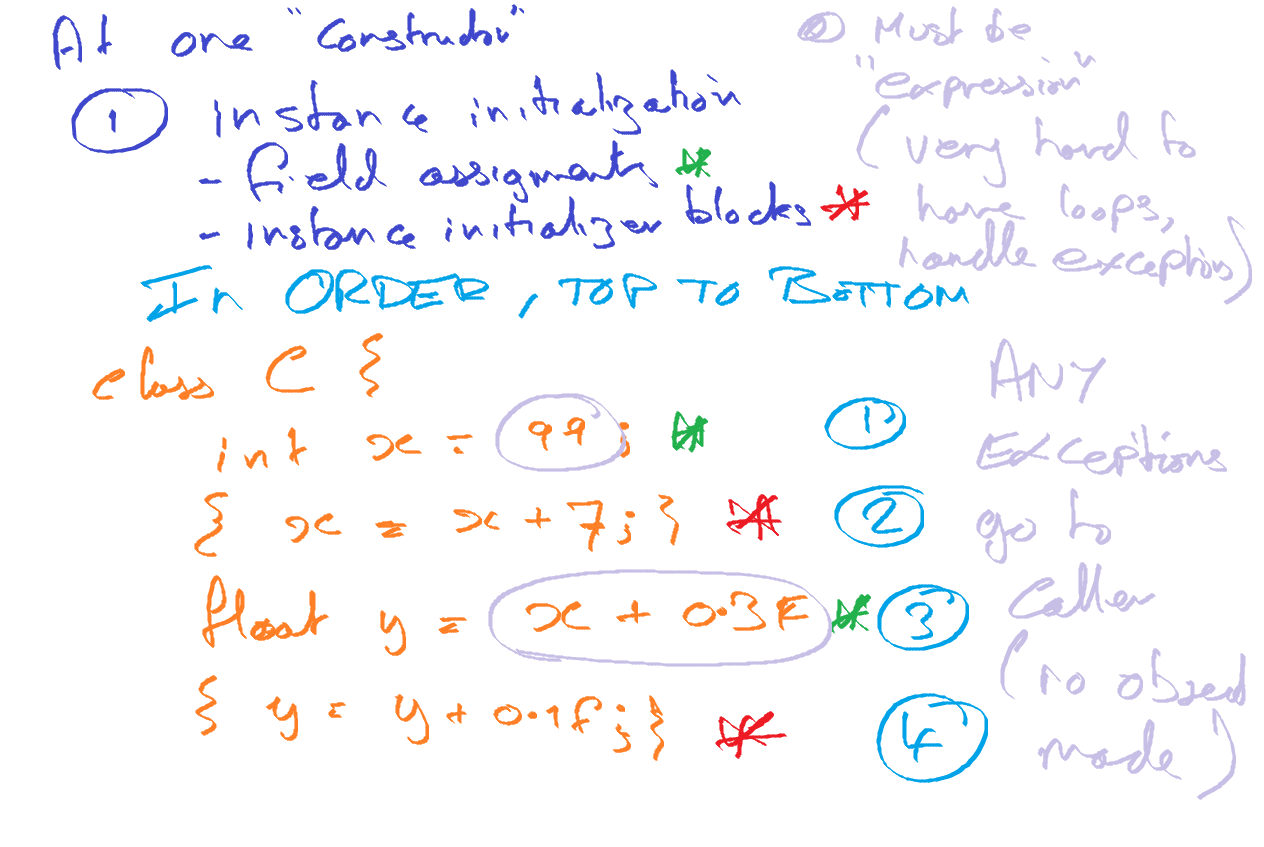 At one "Constructor"
① instance initialization
- field assigments *
- instance initializer blocks *
In ORDER, TOP TO BOTTOM
class C {
int x = 99; * ①
{ x = x + 7; } * ②
float y = x + 0.3F * ③
{ y = y + 0.1f; } * ④
Must be
"expression"
(very hard to
have loops,
handle exceptions)
ANY
Exceptions
go to
Caller
(no object
made)